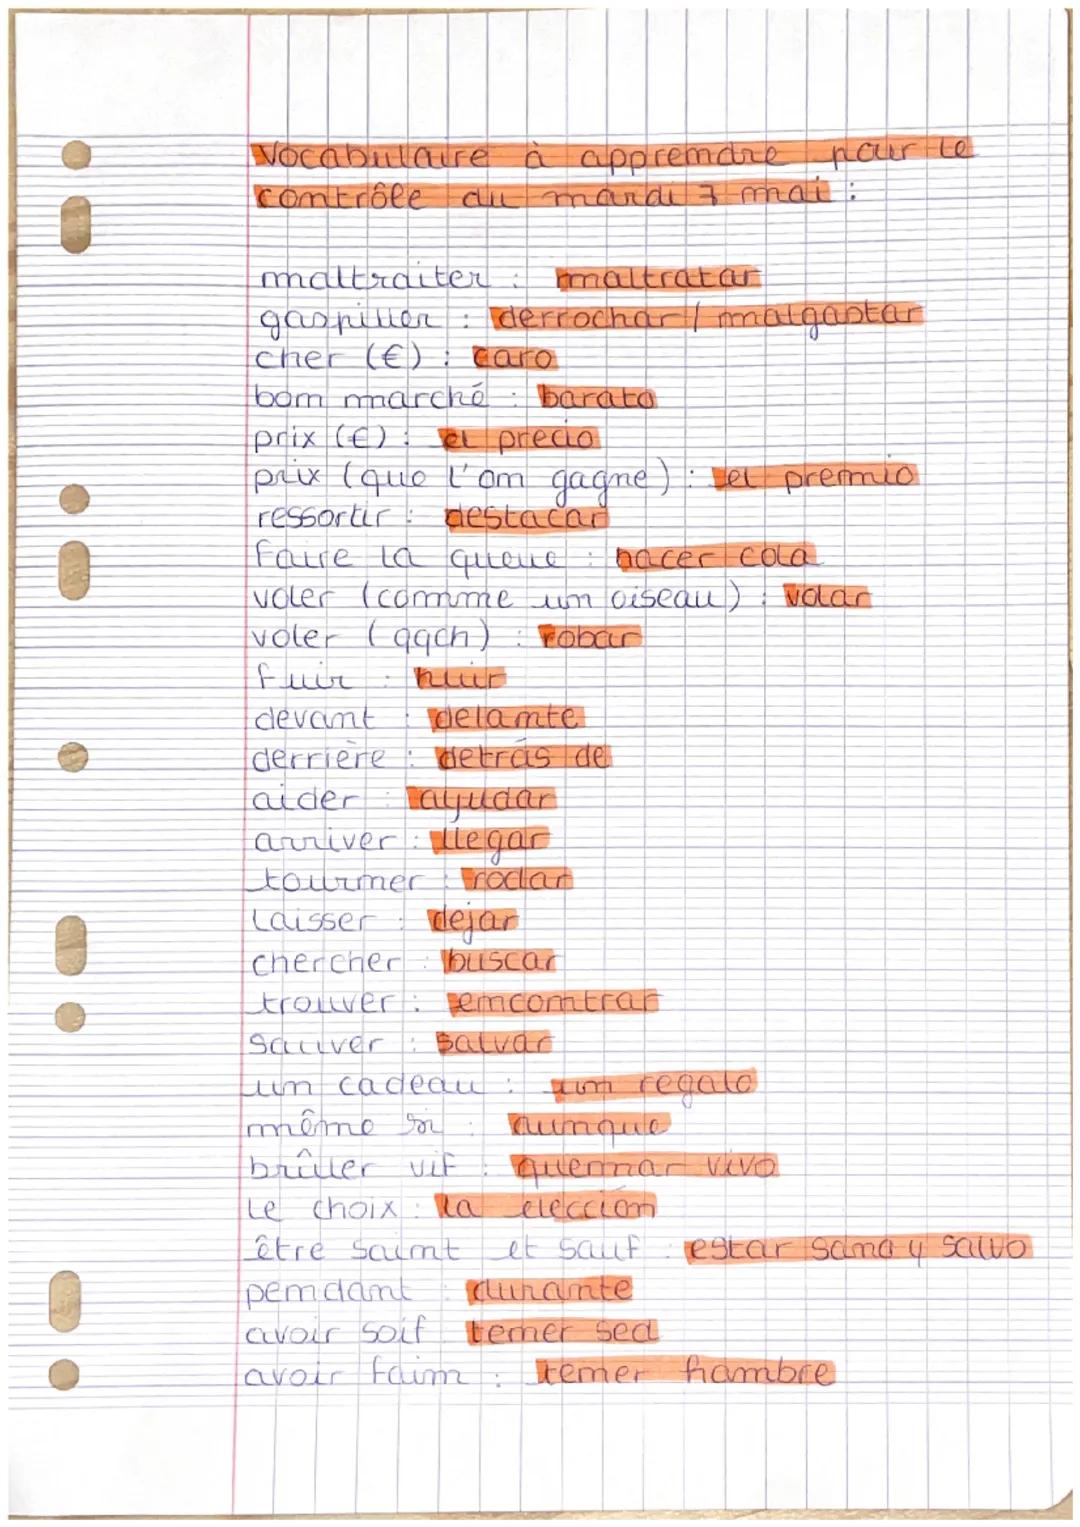 Vocabulaire à apprendre pour le
contrôle du mardi 7 mai :
maltraiter : maltratar
gaspiller : derrochar / malgastar
cher (€) : caro
bon marché : barato
prix (€) : el precio
prix (que l'on gagne) : el premio
ressortir : destacar
faire la queue : hacer cola
voler (comme un oiseau) : volar
voler (qqch) : robar
fuir : huir
devant : delante
derrière : detrás de
aider : ayudar
arriver : llegar
tourner : rodar
laisser : dejar
chercher : buscar
trouver : encontrar
sauver : salvar
un cadeau : un regalo
même si : aunque
brûler vif : quemar vivo
le choix : la elección
être saint et sauf : estar sano y salvo
pendant : durante
avoir soif tener sed
avoir faim : tener hambre